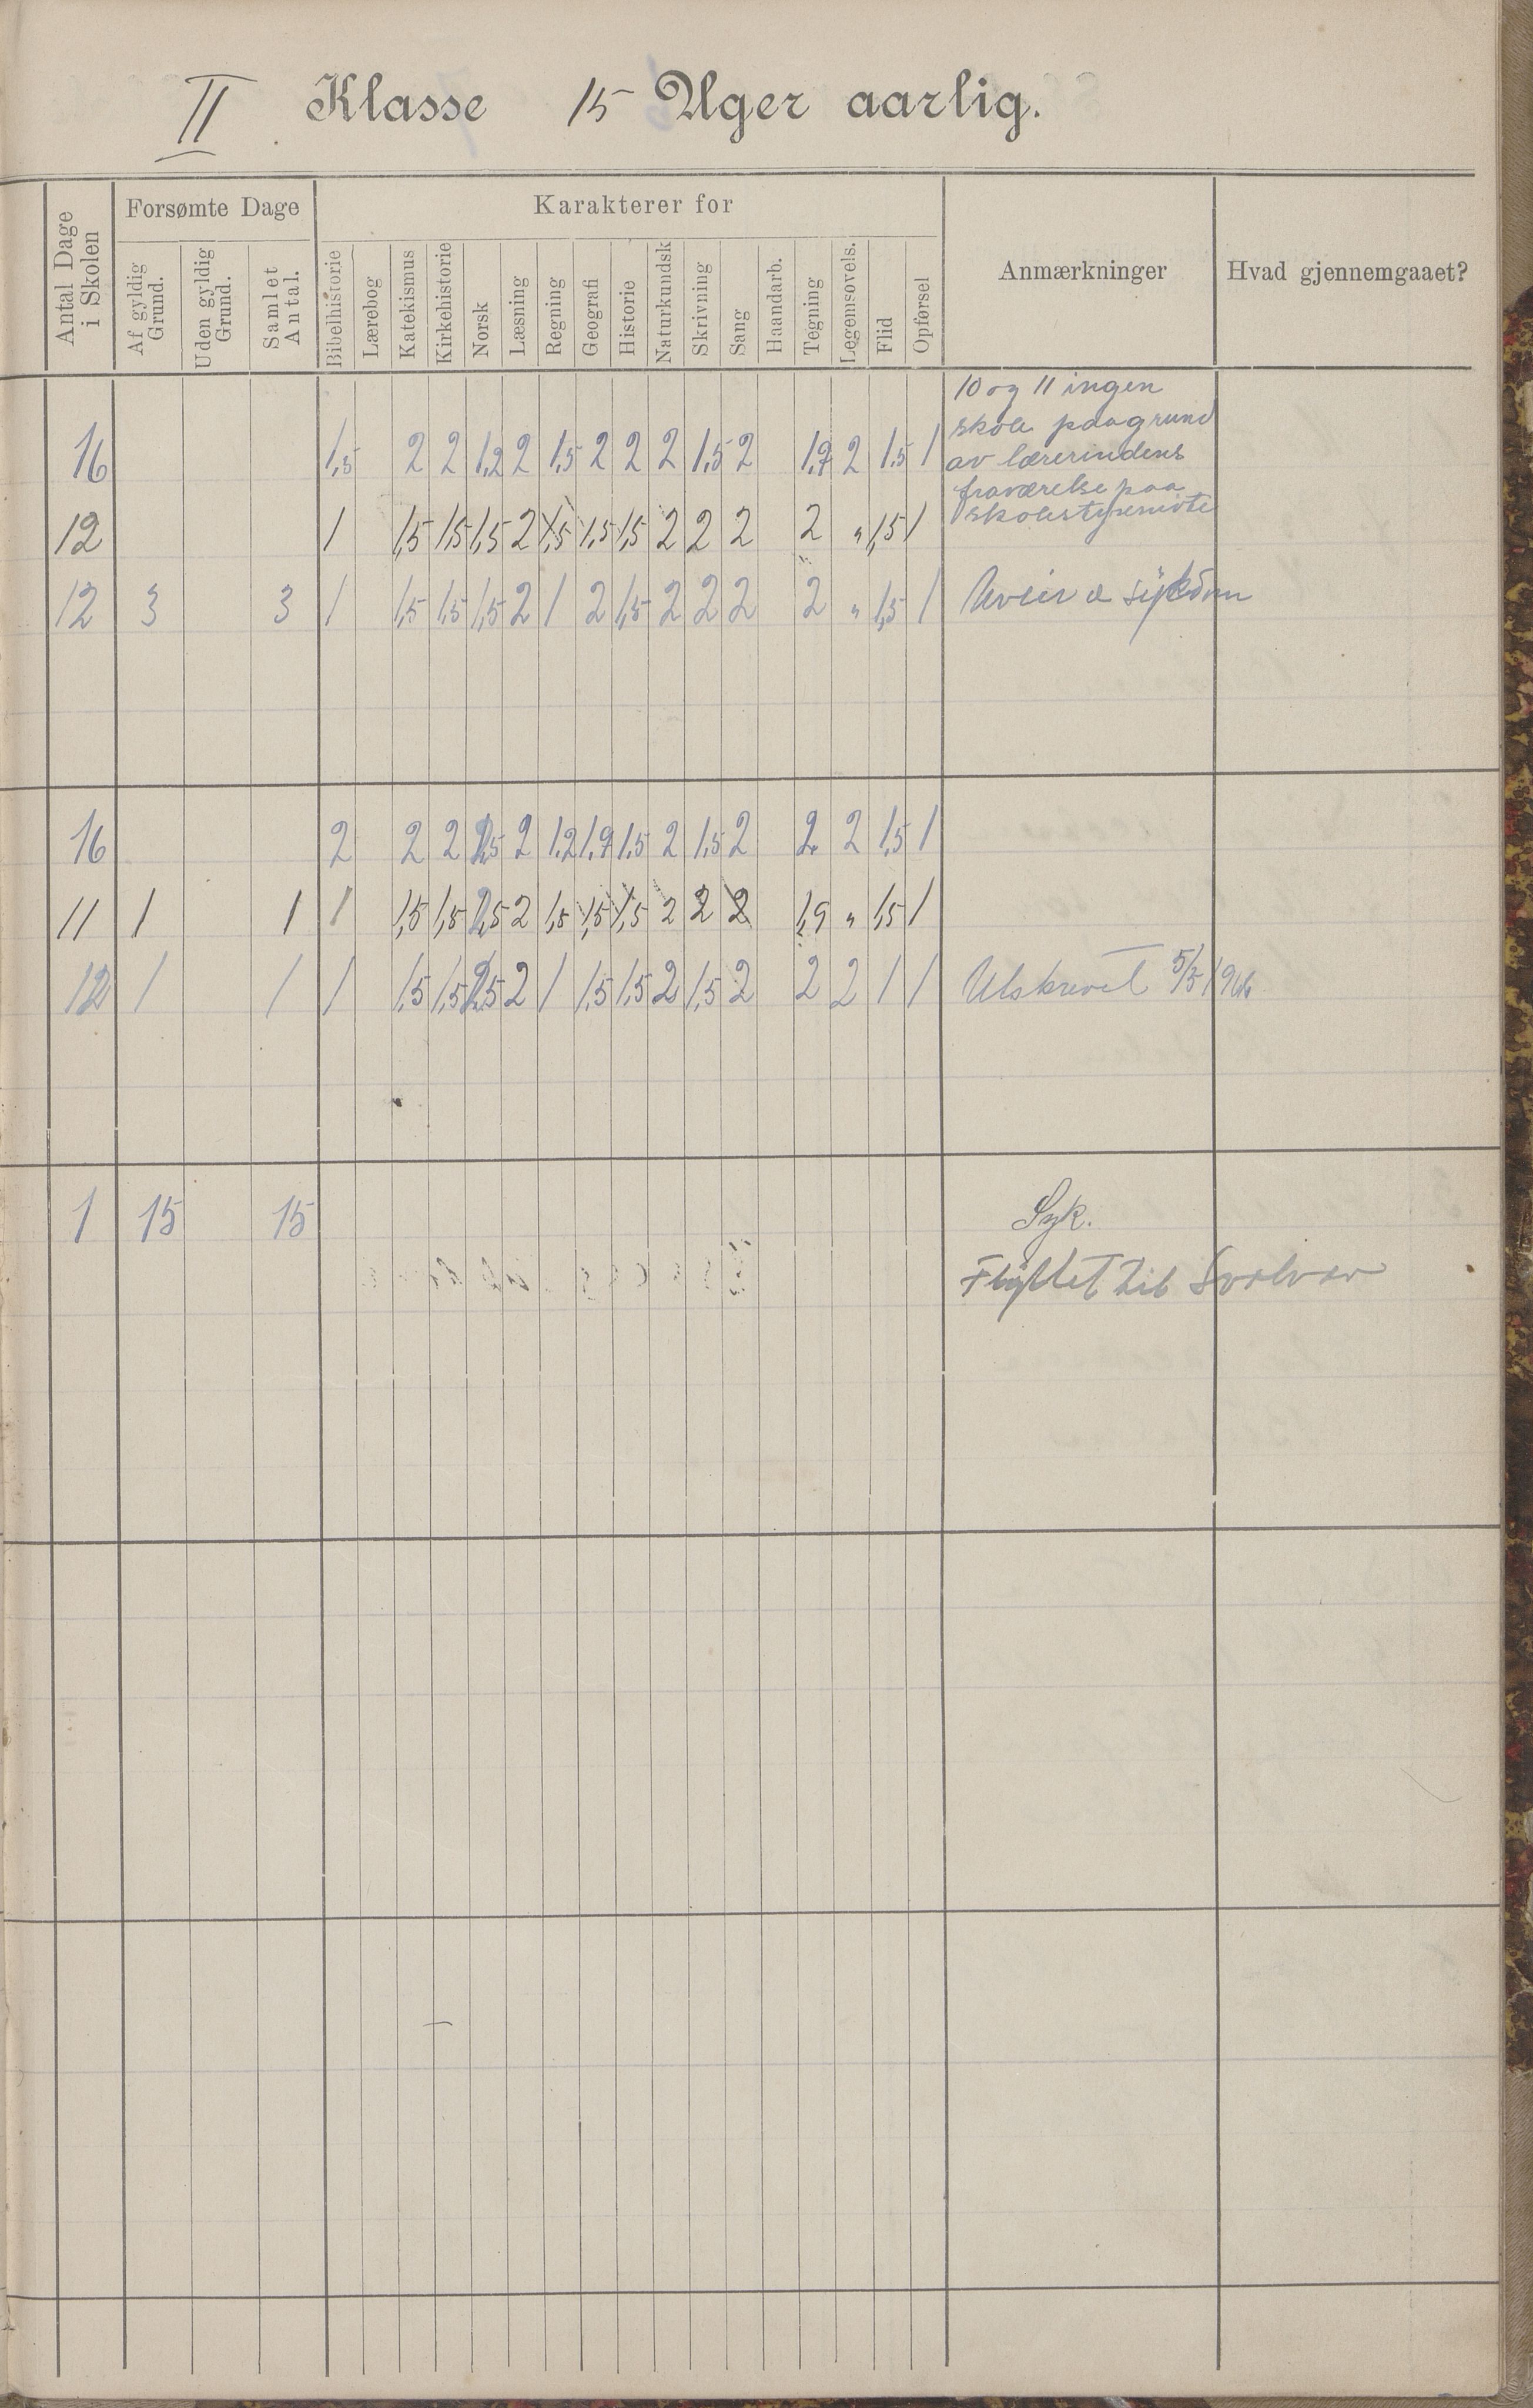 II Klasse 15 Uger aarlig.
Antal Dage i Skolen
Forsømte Dage
Af gyldig Grund.
Uden gyldig Grund.
Samlet Antal.
Karakterer for
Bibelhistorie
Lærebog
Katekismus
Kirkehistorie
Norsk
Læsning
Regning
Geografi
Historie
Naturkundsk
Skrivning
Sang
Haandarb.
Tegning
Legemsovels.
Flid
Opførsel
Anmærkninger
Hvad gjennemgaaet?
10 og 11 ingen
skole paa grund
av lærerindens
fraværelse paa
skolestyremøte
16 1,5 2 2 1,2 2 1,5 2 2 2 1,5 2 1,7 2 1.5 1
12 1 1,5 1,5 1,5 2 1,5 1,5 1,5 2 2 2 2 " 1,5 1
12 3 3 1 1,5 1,5 1,5 2 1 2 1,5 2 2 2 2 " 1,5 1 Uveir sykdom
16 2 2 2 2,5 2 1.2 1.7 1.5 2 1.5 2 2 2 1,5 1
11 1 1 1 1,5 1,5 2,5 2 1,5 1,5 1,5 2 2 2 1,9 " 1,5 1
12 1 1 1 1,5 1,5 2,5 2 1 1,5 1.5 2 1,5 2 2 2 1 1 Utskrevet 5/5
1 15 15 Syk.
Flyttet til Svolvær